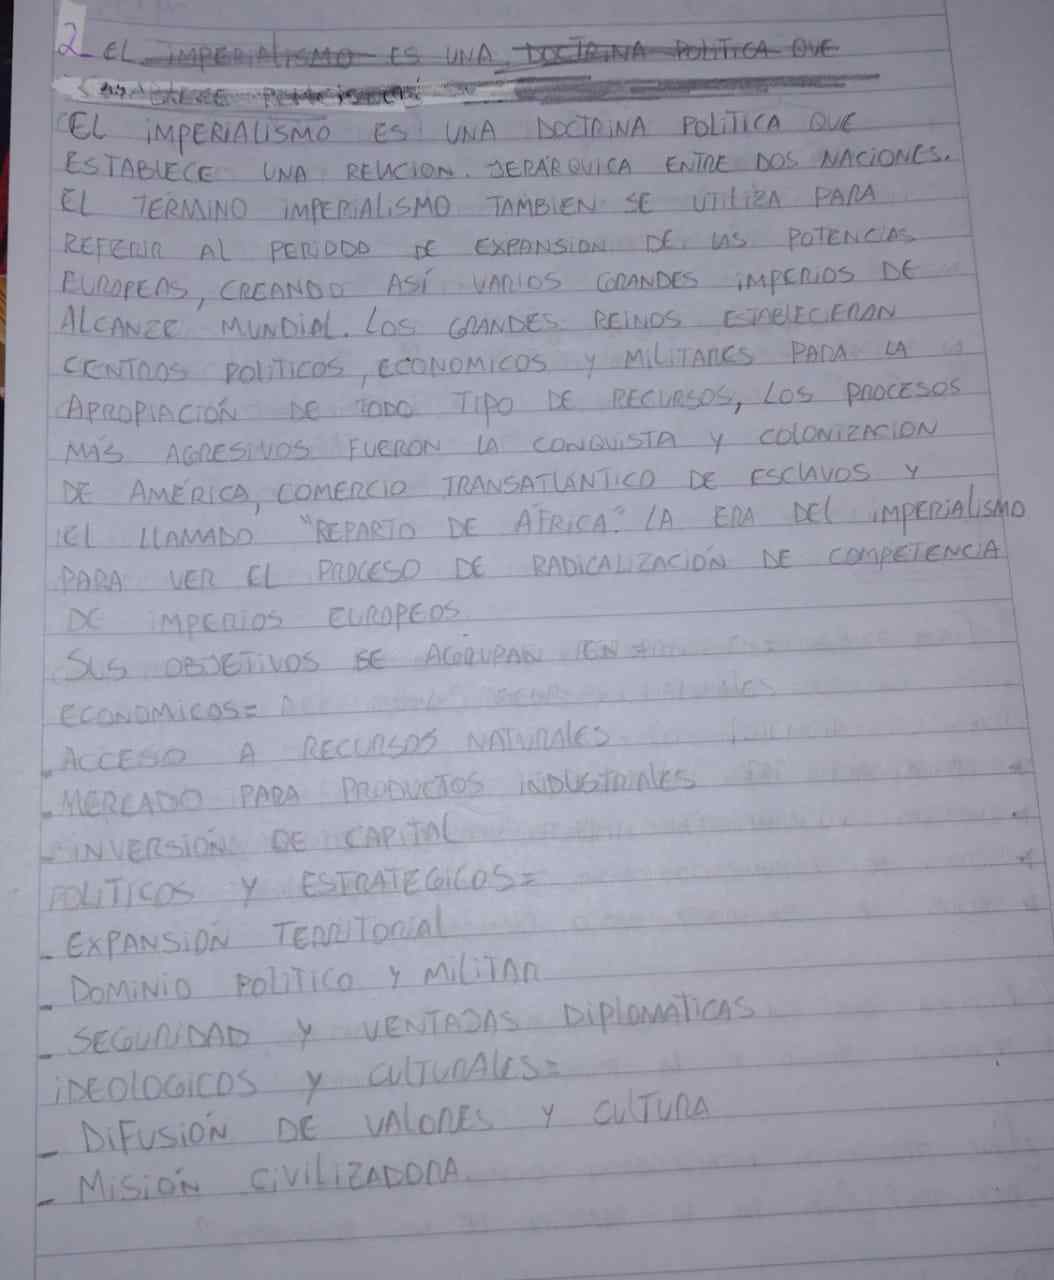 2_ EL IMPERIALISMO ES UNA DOCTRINA POLITICA QUE
EL IMPERIALISMO ES UNA DOCTRINA POLITICA QUE
ESTABLECE UNA RELACION JERARQUICA ENTRE DOS NACIONES.
EL TERMINO IMPERIALISMO TAMBIEN SE UTILIZA PARA
REFERIR AL PERIODO DE EXPANSION DE LAS POTENCIAS
EUROPEAS, CREANDO ASÍ VARIOS GRANDES IMPERIOS DE
ALCANZE MUNDIAL. LOS GRANDES REINOS ESTABLECIERAN
CENTROS POLITICOS, ECONOMICOS Y MILITARES PARA LA
APROPIACIÓN DE TODO TIPO DE RECURSOS, LOS PROCESOS
MÁS AGRESIVOS FUERON LA CONQUISTA Y COLONIZACION
DE AMÉRICA, COMERCIO TRANSATLÁNTICO DE ESCLAVOS Y
EL LLAMADO "REPARTO DE AFRICA". LA ERA DEL IMPERIALISMO
PARA VER EL PROCESO DE RADICALIZACIÓN DE COMPETENCIA
DE IMPERIOS EUROPEOS.
SUS OBJETIVOS SE AGRUPAN EN
ECONOMICOS=
. ACCESO A RECURSOS NATURALES
. MERCADO PARA PRODUCTOS INDUSTRIALES
- INVERSIÓN DE CAPITAL
POLITICOS Y ESTRATEGICOS=
- EXPANSIÓN TERRITORIAL
- DOMINIO POLITICO Y MILITAR
- SEGURIDAD Y VENTAJAS DIPLOMATICAS
IDEOLOGICOS Y CULTURALES=
- DIFUSIÓN DE VALORES Y CULTURA
- MISIÓN CIVILIZADORA.